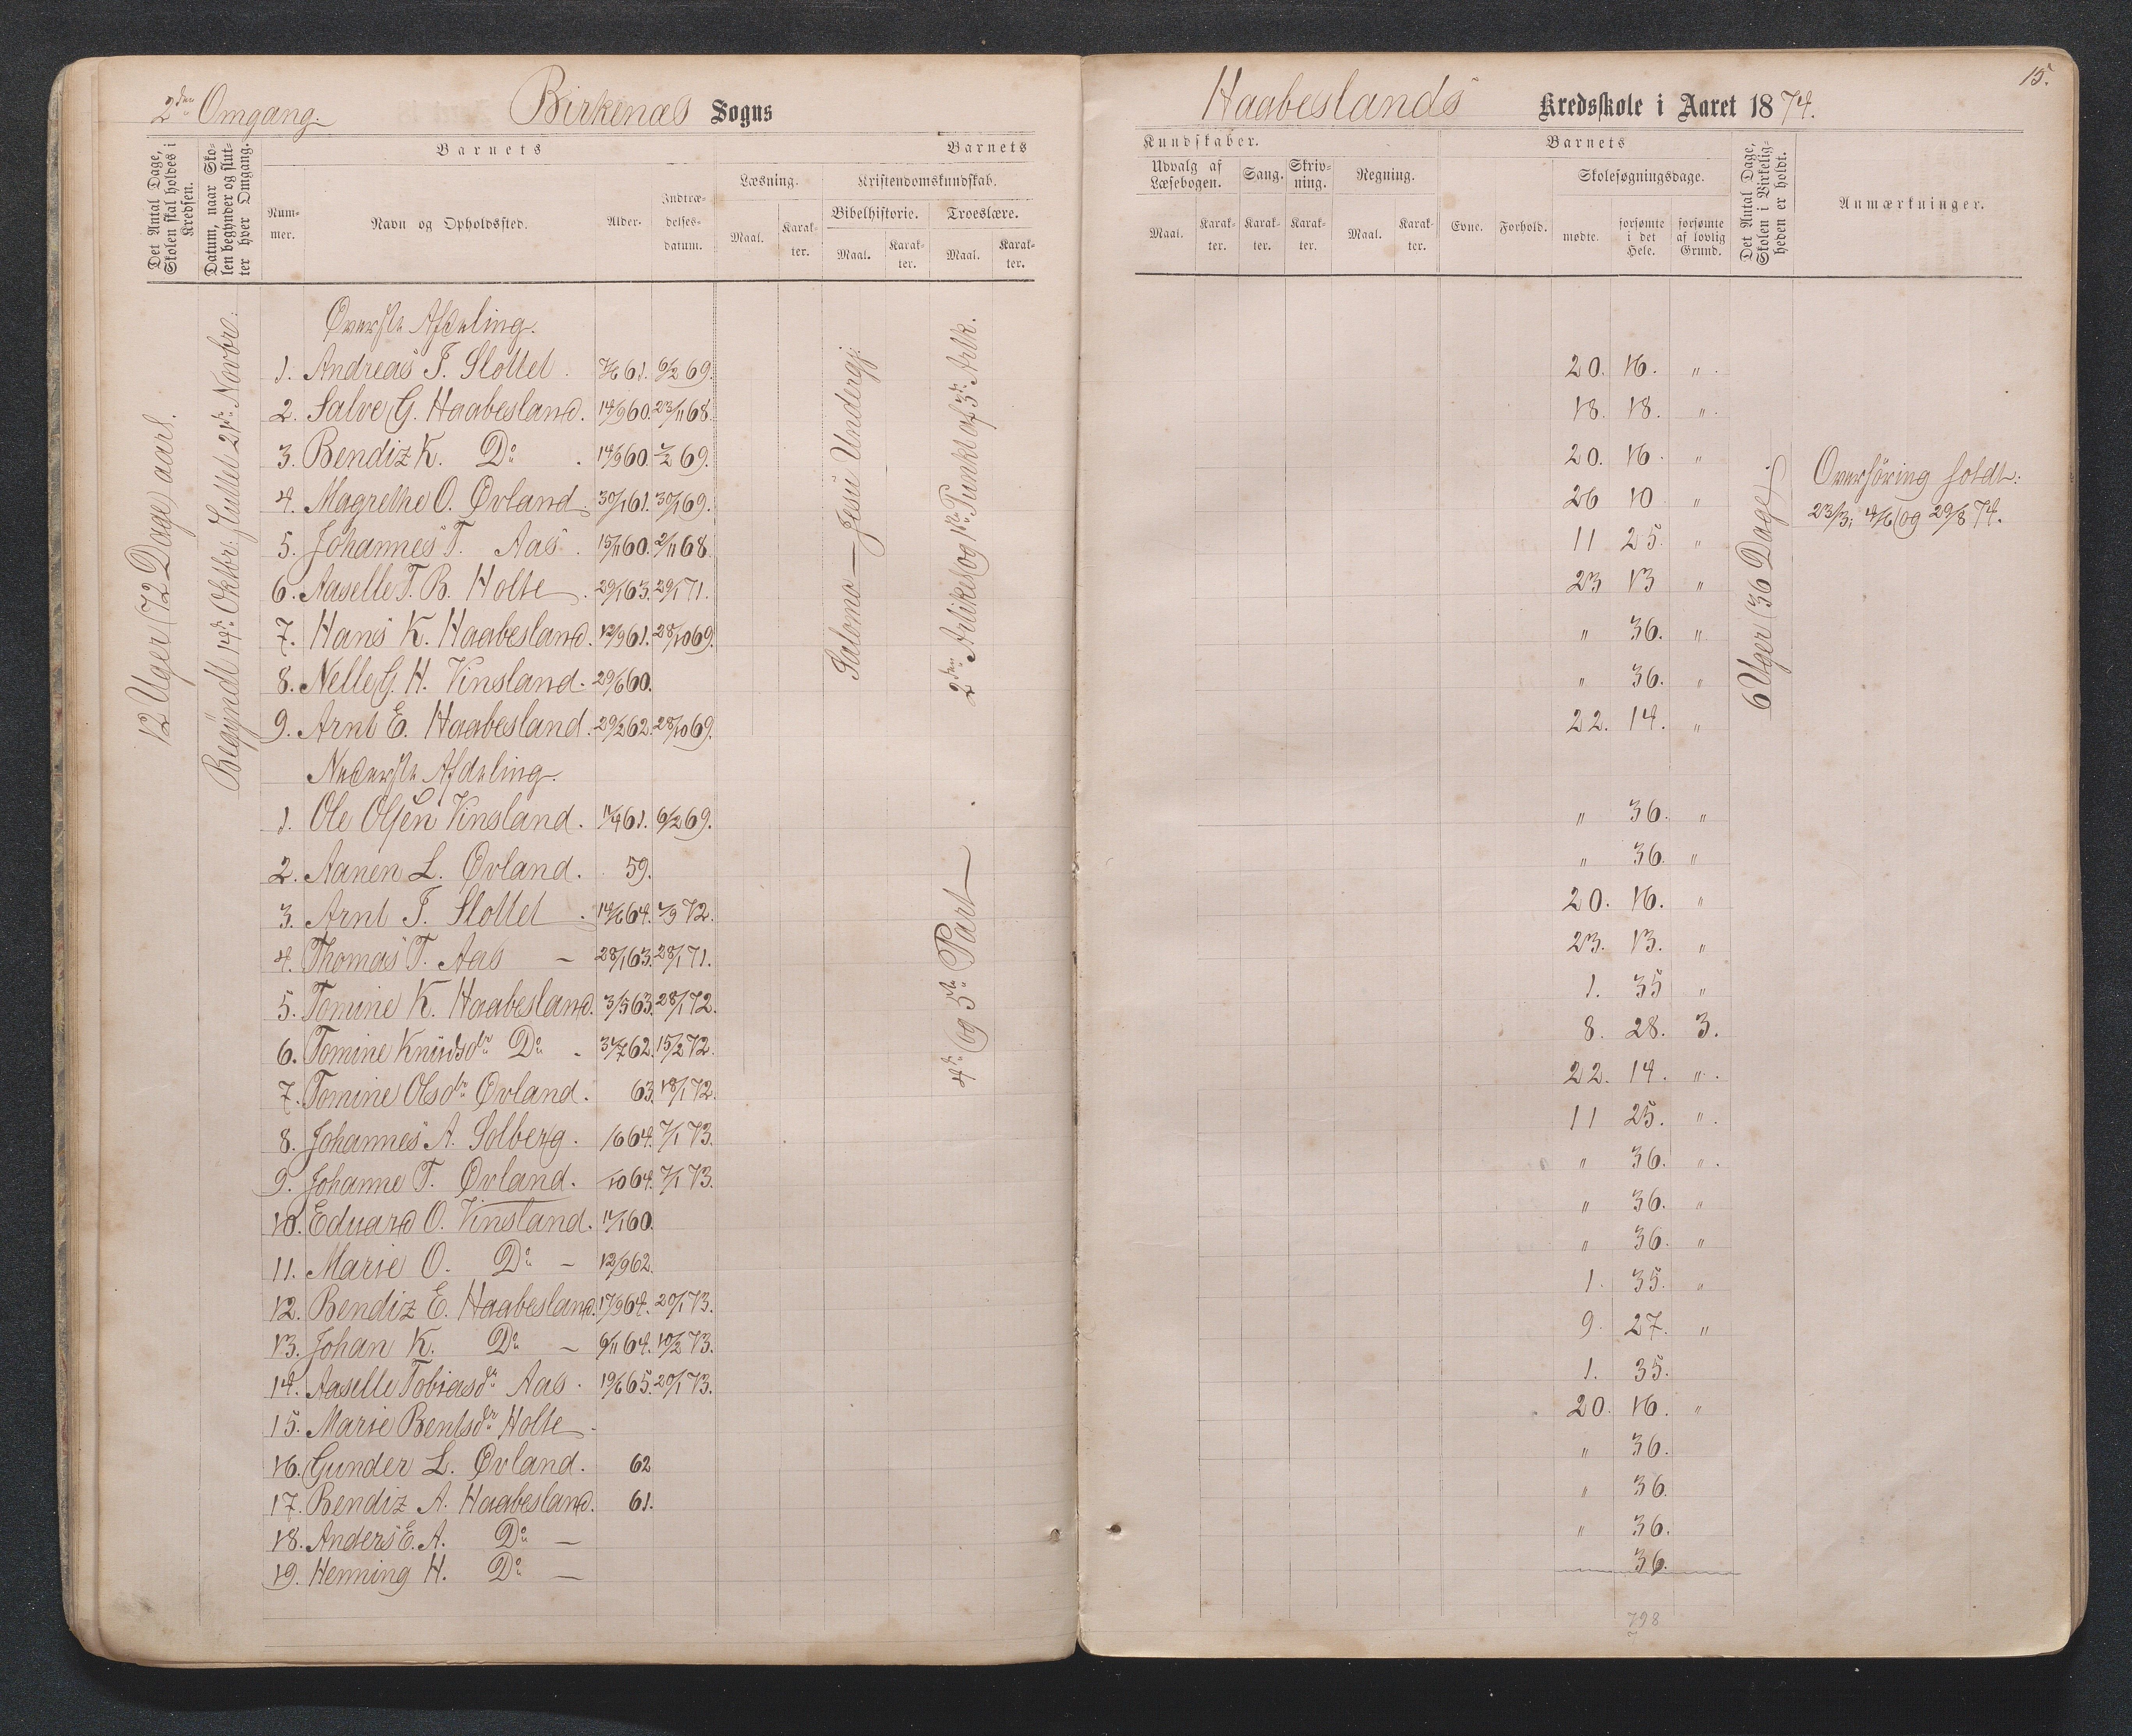 2den Omgang.
Birkenæs Sogns
Haabeslands Kredsskole i Aaret 1874.
15.
Det Antal Dage, Skolen skal holdes i Kredsen.
Datum, naar Skolen begynder og slutter hver Omgang.
Barnets
Nummer.
Navn og Opholdssted.
Alder.
Indtrædelsesdatum.
Barnets
Læsning.
Maal.
Karakter.
Kristendomskundskab.
Bibelhistorie.
Maal.
Karakter.
Troeslære.
Maal.
Karakter.
Kundskaber.
Udvalg af Læsebogen.
Maal.
Karakter.
Sang.
Karakter.
Skrivning.
Karakter.
Regning.
Maal.
Karakter.
Barnets
Evne.
Forhold.
Skolesøgningsdage.
mødte.
forsømte i det Hele.
forsømte af lovlig Grund.
Det Antal Dage, Skolen i Virkeligheden er holdt.
Anmærkninger.
12 Uger (72 Dage) aarl.
Begÿndt 14de Oktbr: Sluttet 21de Novbr:
Salomo — Jesu Undergj.
2den Artikel og 1ste Punkt af 3die Artk.
4de og 5te Part —
6 Uger (36 Dage).
Overhöring holdt:
23/3; 4/6 og 29/8 74.
Øverste Afdeling.
1. Andreas T. Slottet . 7/6 61. 6/2 69. 20. 16. " .
2. Salve G. Haabesland. 14/9 60. 23/11 68. 18. 18. " .
3. Bendiz K. Do . 14/9 60. 7/2 69. 20. 16. "
4. Magrethe O. Øvland. 30/1 61. 30/1 69. 26 10 "
5. Johannes T. Aas . 15/11 60. 2/11 68. 11 25. "
6. Aaselle T. B. Holte . 29/1 63. 29/1 71. 23 13 "
7. Hans K. Haabesland. 12/9 61. 28/10 69. " 36. "
8. Nelle G. H. Vinsland. 29/6 60. " 36. "
9. Arnt E. Haabesland. 29/2 62. 28/10 69. 22. 14. "
Nederste Afdeling.
1. Ole Olsen Vinsland. 11/4 61. 6/2 69. " 36. "
2. Aanen L. Øvland. 59. " 36. "
3. Arnt T. Slottet . 14/6 64. 7/9 72. 20. 16. "
4. Thomas T. Aas — 28/1 63. 28/1 71. 23. 13. "
5. Tomine K. Haabesland. 3/5 63. 28/1 72. 1. 35 "
6. Tomine Knudsdtr Do . 31/7 62. 15/2 72. 8. 28. 3.
7. Tomine Olsdtr Øvland. 63. 18/1 72. 22. 14. " .
8. Johannes A. Solberg. /6 64. 7/1 73. 11 25. " .
9. Johanne T. Øvland. /10 64. 7/1 73. " 36. " .
10. Eduard O. Vinsland. 11/1 60. " 36. "
11. Marie O. Do — 12/9 62. " 36. "
12. Bendiz E. Haabesland. 17/9 64. 20/1 73. 1. 35. "
13. Johan K. Do — 6/11 64. 10/2 73. 9. 27. "
14. Aaselle Tobiasdr Aas. 19/6 65. 20/1 73. 1. 35.
15. Marie Bentsdr Holte . 20. 16. "
16. Gunder L. Øvland. 62 " 36.
17. Bendiz A. Haabesland. 61. " 36.
18. Anders E. A. Do — " 36.
19. Henning H. Do — 36.
798